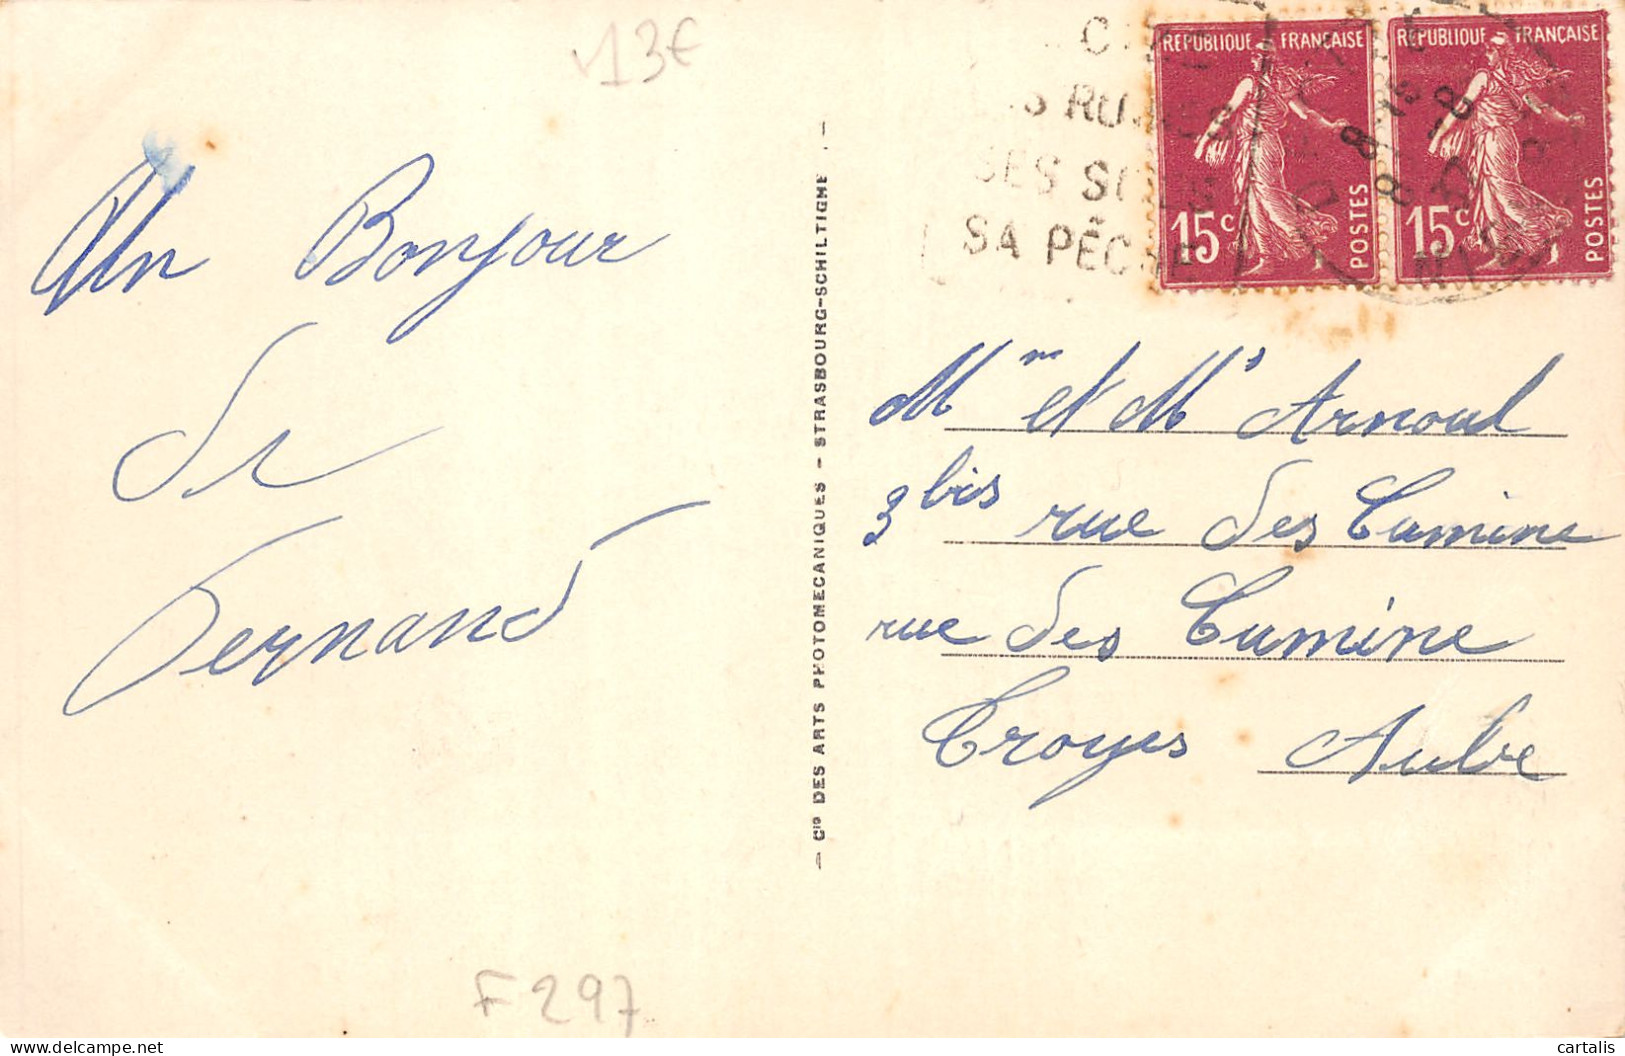 13€
Un Bonjour
de
Fernand
F297
Cie DES ARTS PHOTOMECANIQUES - STRASBOURG-SCHILTIGHEIM
SES
SA PÊCHE
REPUBLIQUE FRANÇAISE
15c
POSTES
REPUBLIQUE FRANÇAISE
15c
POSTES
Mme et Mr Arnoul
3 bis rue des Cumine
rue des Cumine
Troyes Aube
cartalis
delcampe.net